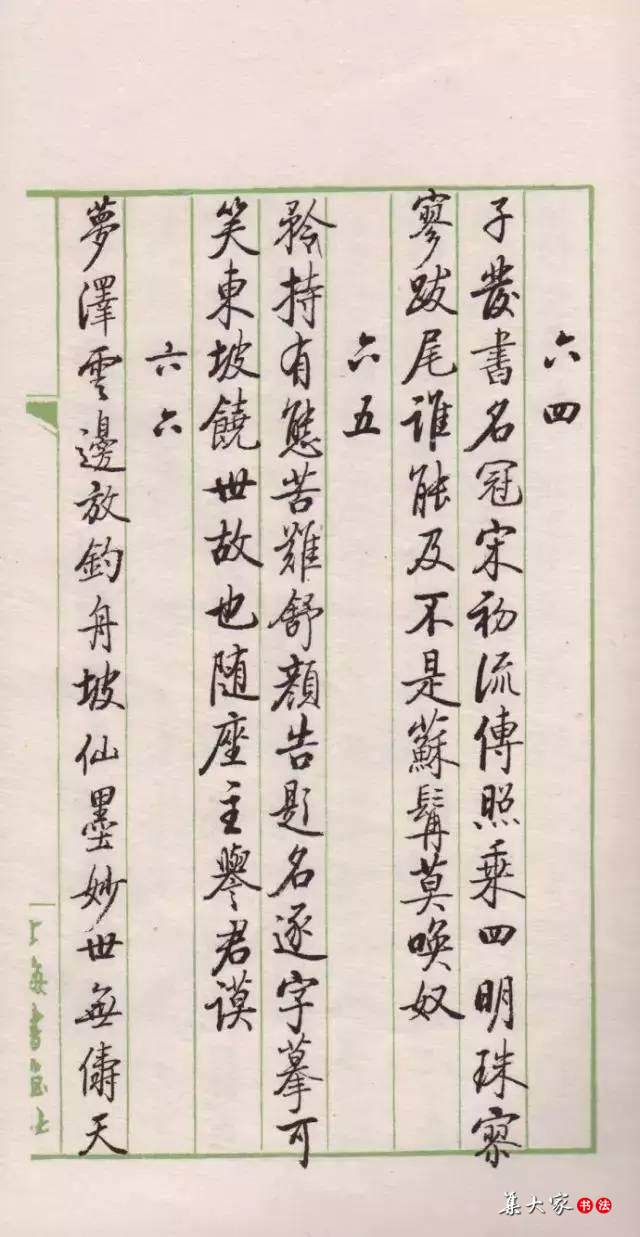 六四
子發書名冠宋初流傳照乘四明珠寥
寥跋尾誰能及不是蘇髯莫喚奴
六五
矜持有態苦難舒顏告題名逐字摹可
笑東坡饒世故也隨座主譽君謨
六六
夢澤雲邊放釣舟坡仙墨妙世無儔天
上海書畫社
集大家書法